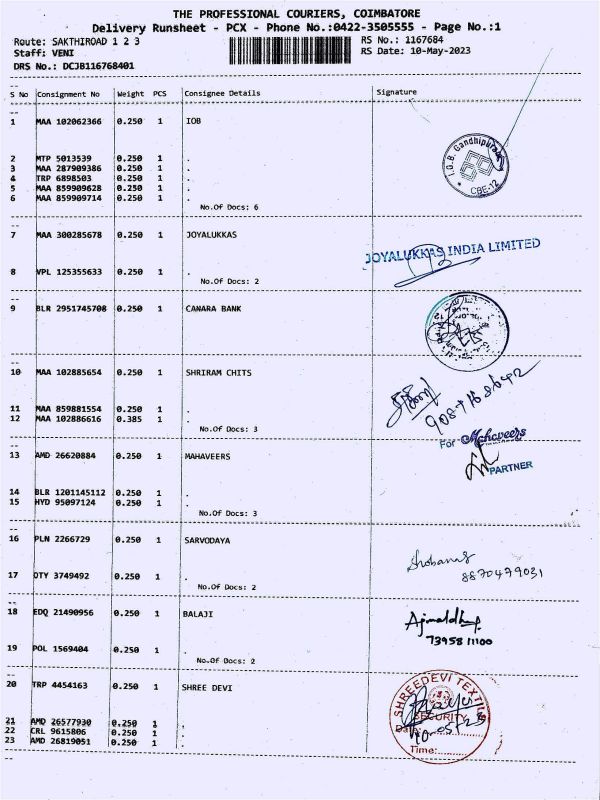 THE PROFESSIONAL COURIERS, COIMBATORE
Delivery Runsheet - PCX - Phone No.:0422-3505555 - Page No.:1
Route: SAKTHIROAD 1 2 3
RS No.: 1167684
Staff: VENI
RS Date: 10-May-2023
DRS No.: DCJB116768401
S No Consignment No Weight PCS Consignee Details Signature
1 MAA 102062366 0.250 1 IOB
I.O.B. Gandhipuram
CBE-12
2 MTP 5013539 0.250 1 .
3 MAA 287909386 0.250 1 .
4 TRP 6898503 0.250 1 .
5 MAA 859909628 0.250 1 .
6 MAA 859909714 0.250 1 .
No.Of Docs: 6
7 MAA 300285678 0.250 1 JOYALUKKAS
JOYALUKKAS INDIA LIMITED
8 VPL 125355633 0.250 1 .
No.Of Docs: 2
9 BLR 2951745708 0.250 1 CANARA BANK
10 MAA 102885654 0.250 1 SHRIRAM CHITS
11 MAA 859881554 0.250 1 .
12 MAA 102886616 0.385 1 .
No.Of Docs: 3
For Mahaveers
13 AMD 26620884 0.250 1 MAHAVEERS
PARTNER
14 BLR 1201145112 0.250 1 .
15 HYD 95097124 0.250 1 .
No.Of Docs: 3
16 PLN 2266729 0.250 1 SARVODAYA
8870479031
17 OTY 3749492 0.250 1 .
No.Of Docs: 2
18 EDQ 21490956 0.250 1 BALAJI
73958 11100
19 POL 1569404 0.250 1 .
No.Of Docs: 2
20 TRP 4454163 0.250 1 SHREE DEVI
SHREEDEVI TEXTILE
SECURITY
Date:
Time:
21 AMD 26577930 0.250 1 .
22 CRL 9615806 0.250 1 .
23 AMD 26819051 0.250 1 .